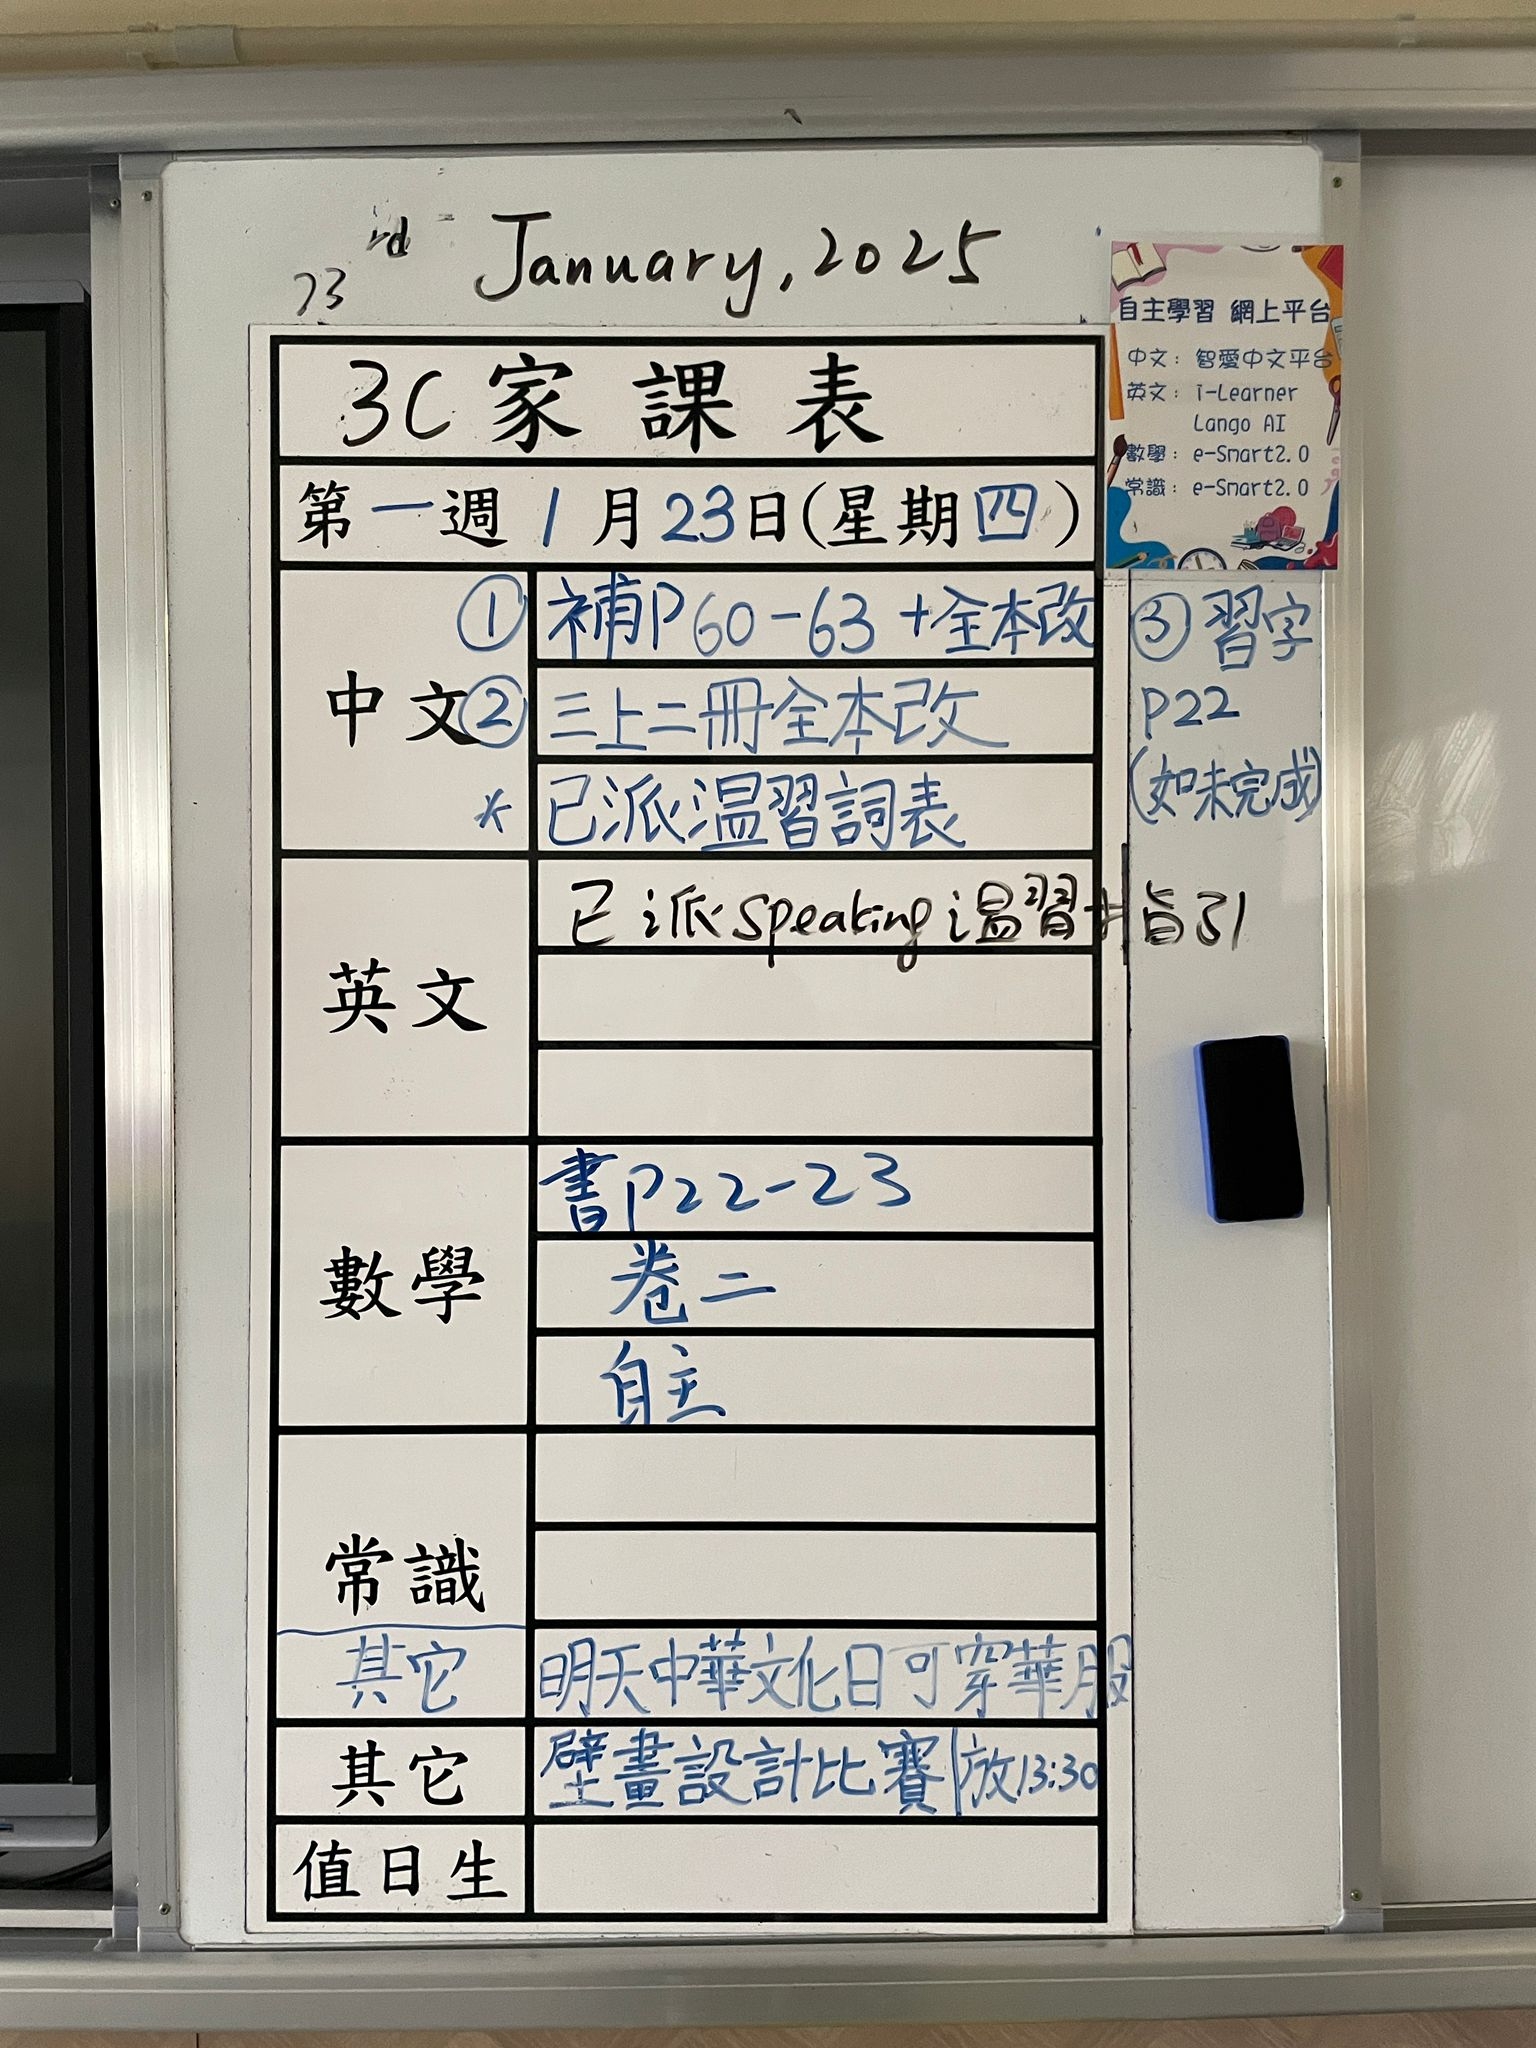 23rd January, 2025
自主學習 網上平台
中文：智愛中文平台
英文：i-Learner
Lango AI
數學：e-Smart2.0
常識：e-Smart2.0
3C 家課表
第一週 1月23日(星期四)
中文
① 補P60-63 +全本改
② 三上二冊全本改
* 已派温習詞表
③ 習字
P22
(如未完成)
英文
已派Speaking温習指引
數學
書P22-23
卷二
自主
常識
其它
明天中華文化日可穿華服
其它
壁畫設計比賽|放13:30
值日生